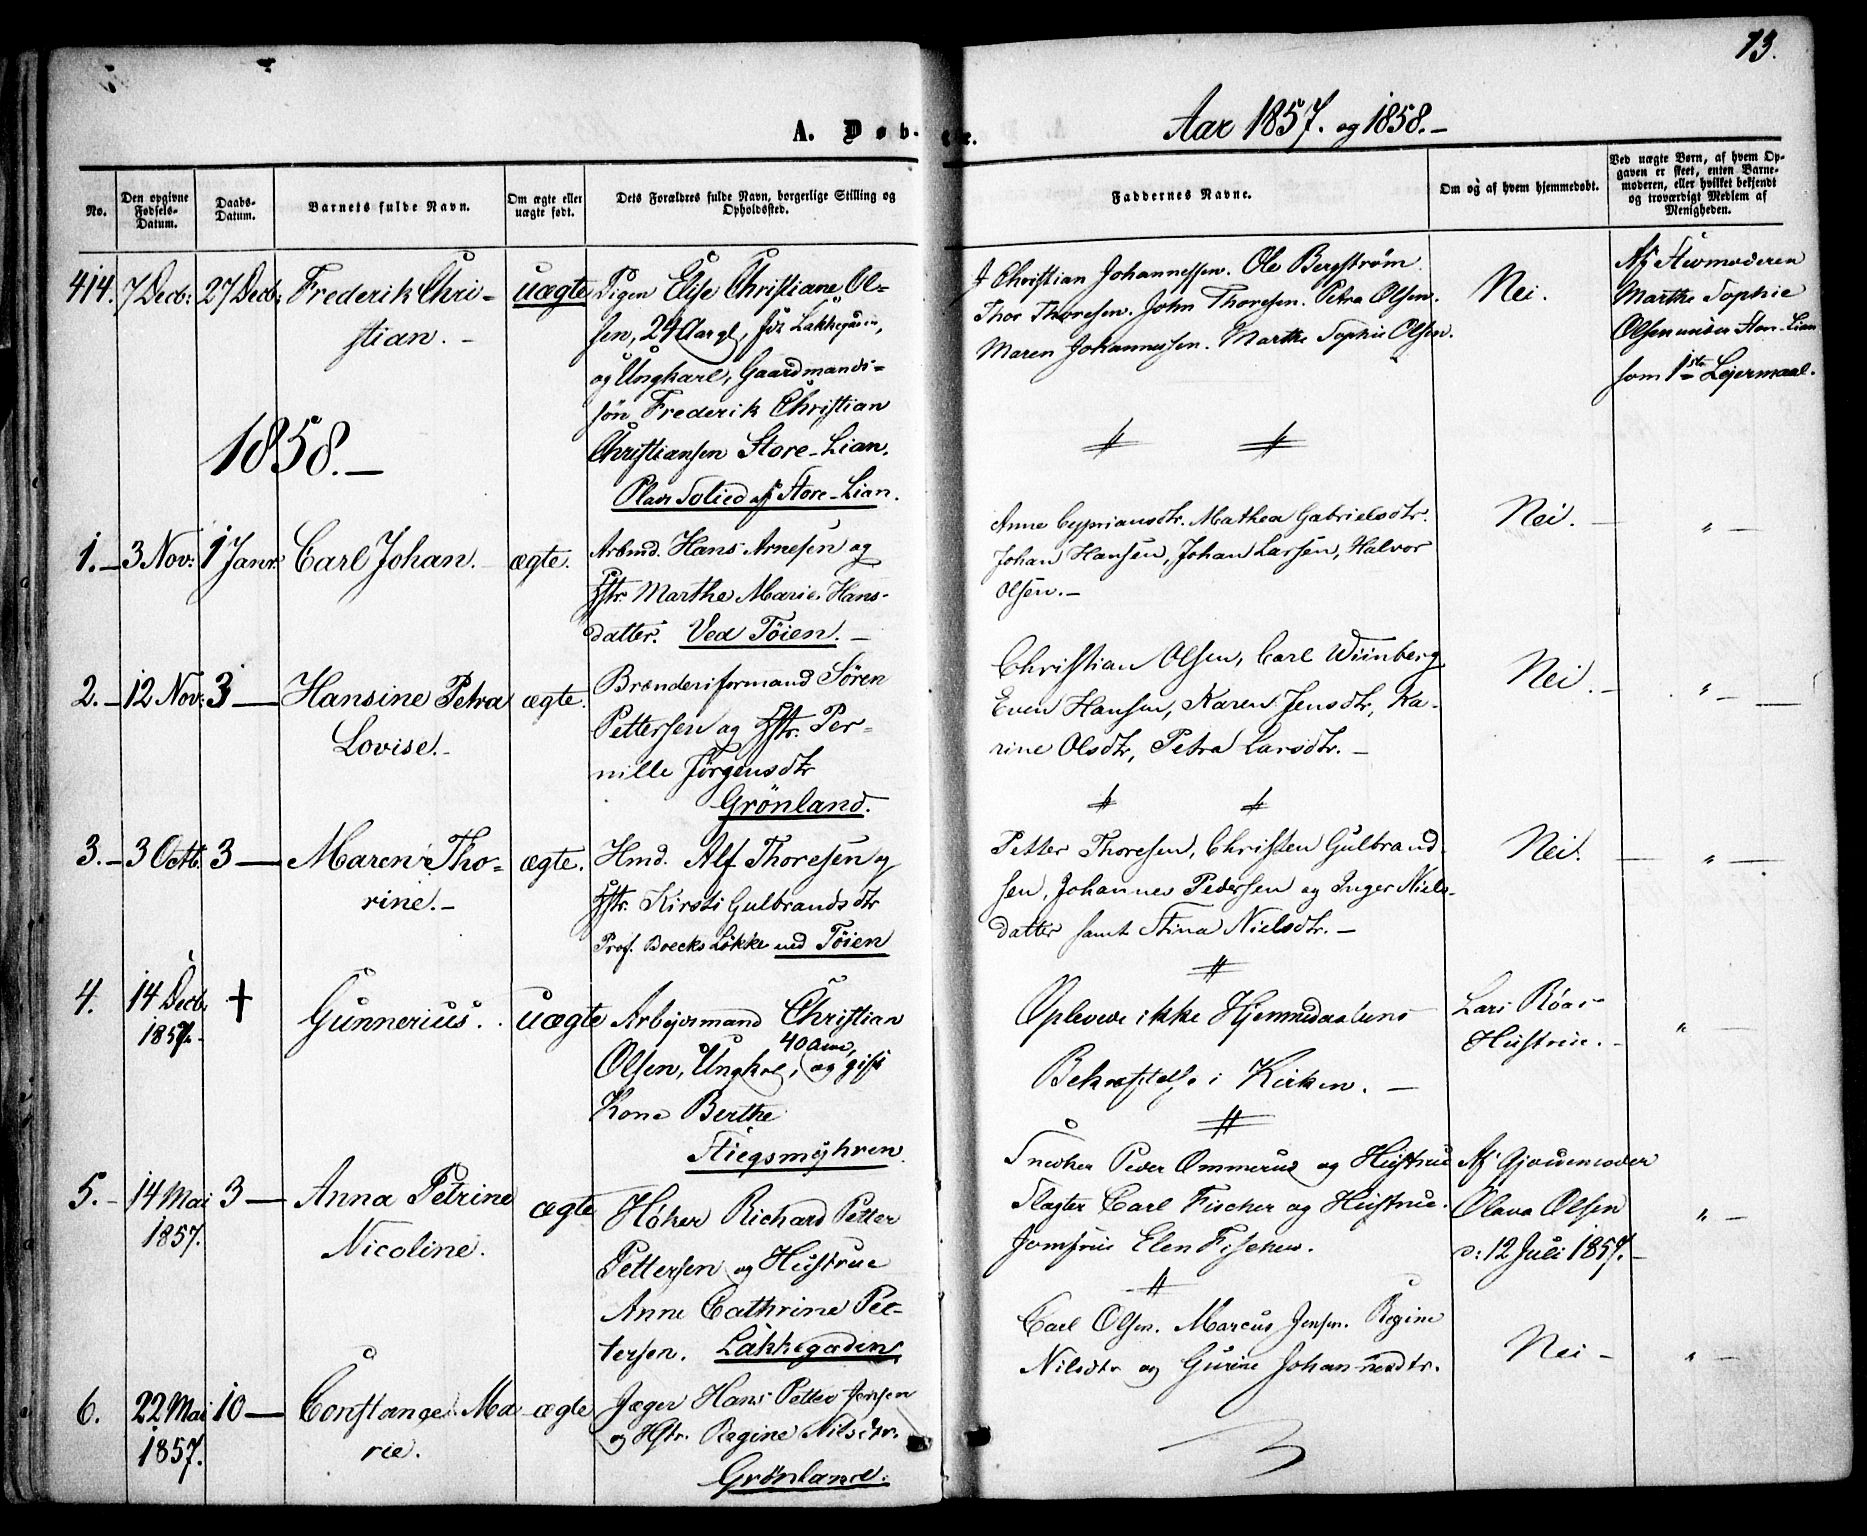 73.
Aar 1857. og 1858.-
A. Døb-
te.
No.
Den opgivne Fødsels-Datum.
Daabs-Datum.
Barnets fulde Navn.
Om ægte eller uægte født.
Dets Forældres fulde Navn, borgerlige Stilling og Opholdssted.
Faddernes Navne.
Om og af hvem hjemmedøbt.
Ved uægte Børn, af hvem Opgaven er skeet, enten Barnemoderen, eller hvilket bekjendt og troværdigt Medlem af Menigheden.
414. 7 Decb: 27 Decb: Frederik Chri-
stian. -
uægte
Pigen Elise Christiane Ol-
sen, 24 Aar gl, før Lakkegaden,
og Ungkarl, Gaardmands-
søn Frederik Christian
Christiansen Store-Lian.
Plads Solied af Store-Lian.
Christian Johannessen. Ole Bergstrøm.
Thor Thoresen. John Thoresen. Petra Olsen.
Maren Johannessen. Marthe Sophie Olsen.
Nei.
Af
Marthe Sophie
Olsen under Store-Lian
som 1ste Lejermaal.
1858.-
1.- 3 Nov: 1 Janr Carl Johan. - ægte.
Arbmd. Hans Arnesen og
Hstr. Marthe Marie Hans-
datter. Ved Töien. -
Anne Cypriansdtr. Mathea Gabrielsdtr.
Johan Hansen, Johan Larsen, Halvor
Olsen.-
Nei. - " -
2.- 12 Nov: 3 - Hansine Petra
Lovise.-
ægte.
Brænderiformand Sören
Pettersen og Hstr. Per-
nille Jørgensdtr
Grönland.
Christian Olsen, Carl Wiinberg
Even Hansen, Karen Jensdtr, Ka-
rine Olsdtr, Petra Larsdtr.-
Nei. - " -
3.- 3 Octb. 3 - Maren Tho-
rine.-
ægte.
Hmd. Alf Thoresen og
Hstr. Kirsti Gulbrandsdtr
Prof. Boecks Løkke ved Töien
Petter Thoresen, Christen Gulbrand-
sen, Johannes Pedersen og Inger Niels-
datter samt Stina Nielsdtr.-
Nei. - " -
4. 14 Decb.
1857.-
† Gunnerius. uægte
Arbeidsmand Christian
40 Aar,
Olsen, Ungkrl, og gift
Kone Berthe
Stiegsmyhren
Oplevede ikke Hjemmedaabens
Bekræftelse i Kirken. -
Lars Röas
Hustrue. - " -
5.- 14 Mai
1857.
3 - Anna Petrine
Nicoline.
ægte
Høker Richard Petter
Pettersen og Hustrue
Anne Cathrine Pet-
tersen. Lakkegaden
Snedker Peder Ommerud og Hustrue
Slagter Carl Fischer og Hustrue.
Jomfrue Elen Fischer.
Af Gjordemoder
Olava Olsen
d: 12 Juli 1857.- " -
6. 22 Mai
1857.
10 - Constance Ma
rie.
ægte
Jæger Hans Petter Jensen
og Hstr. Regine Nilsdtr.
Grönland.
Carl Olsen. Marcus Jensen. Regine
Nilsdtr og Gurine Johannesdtr.
Nei - " -